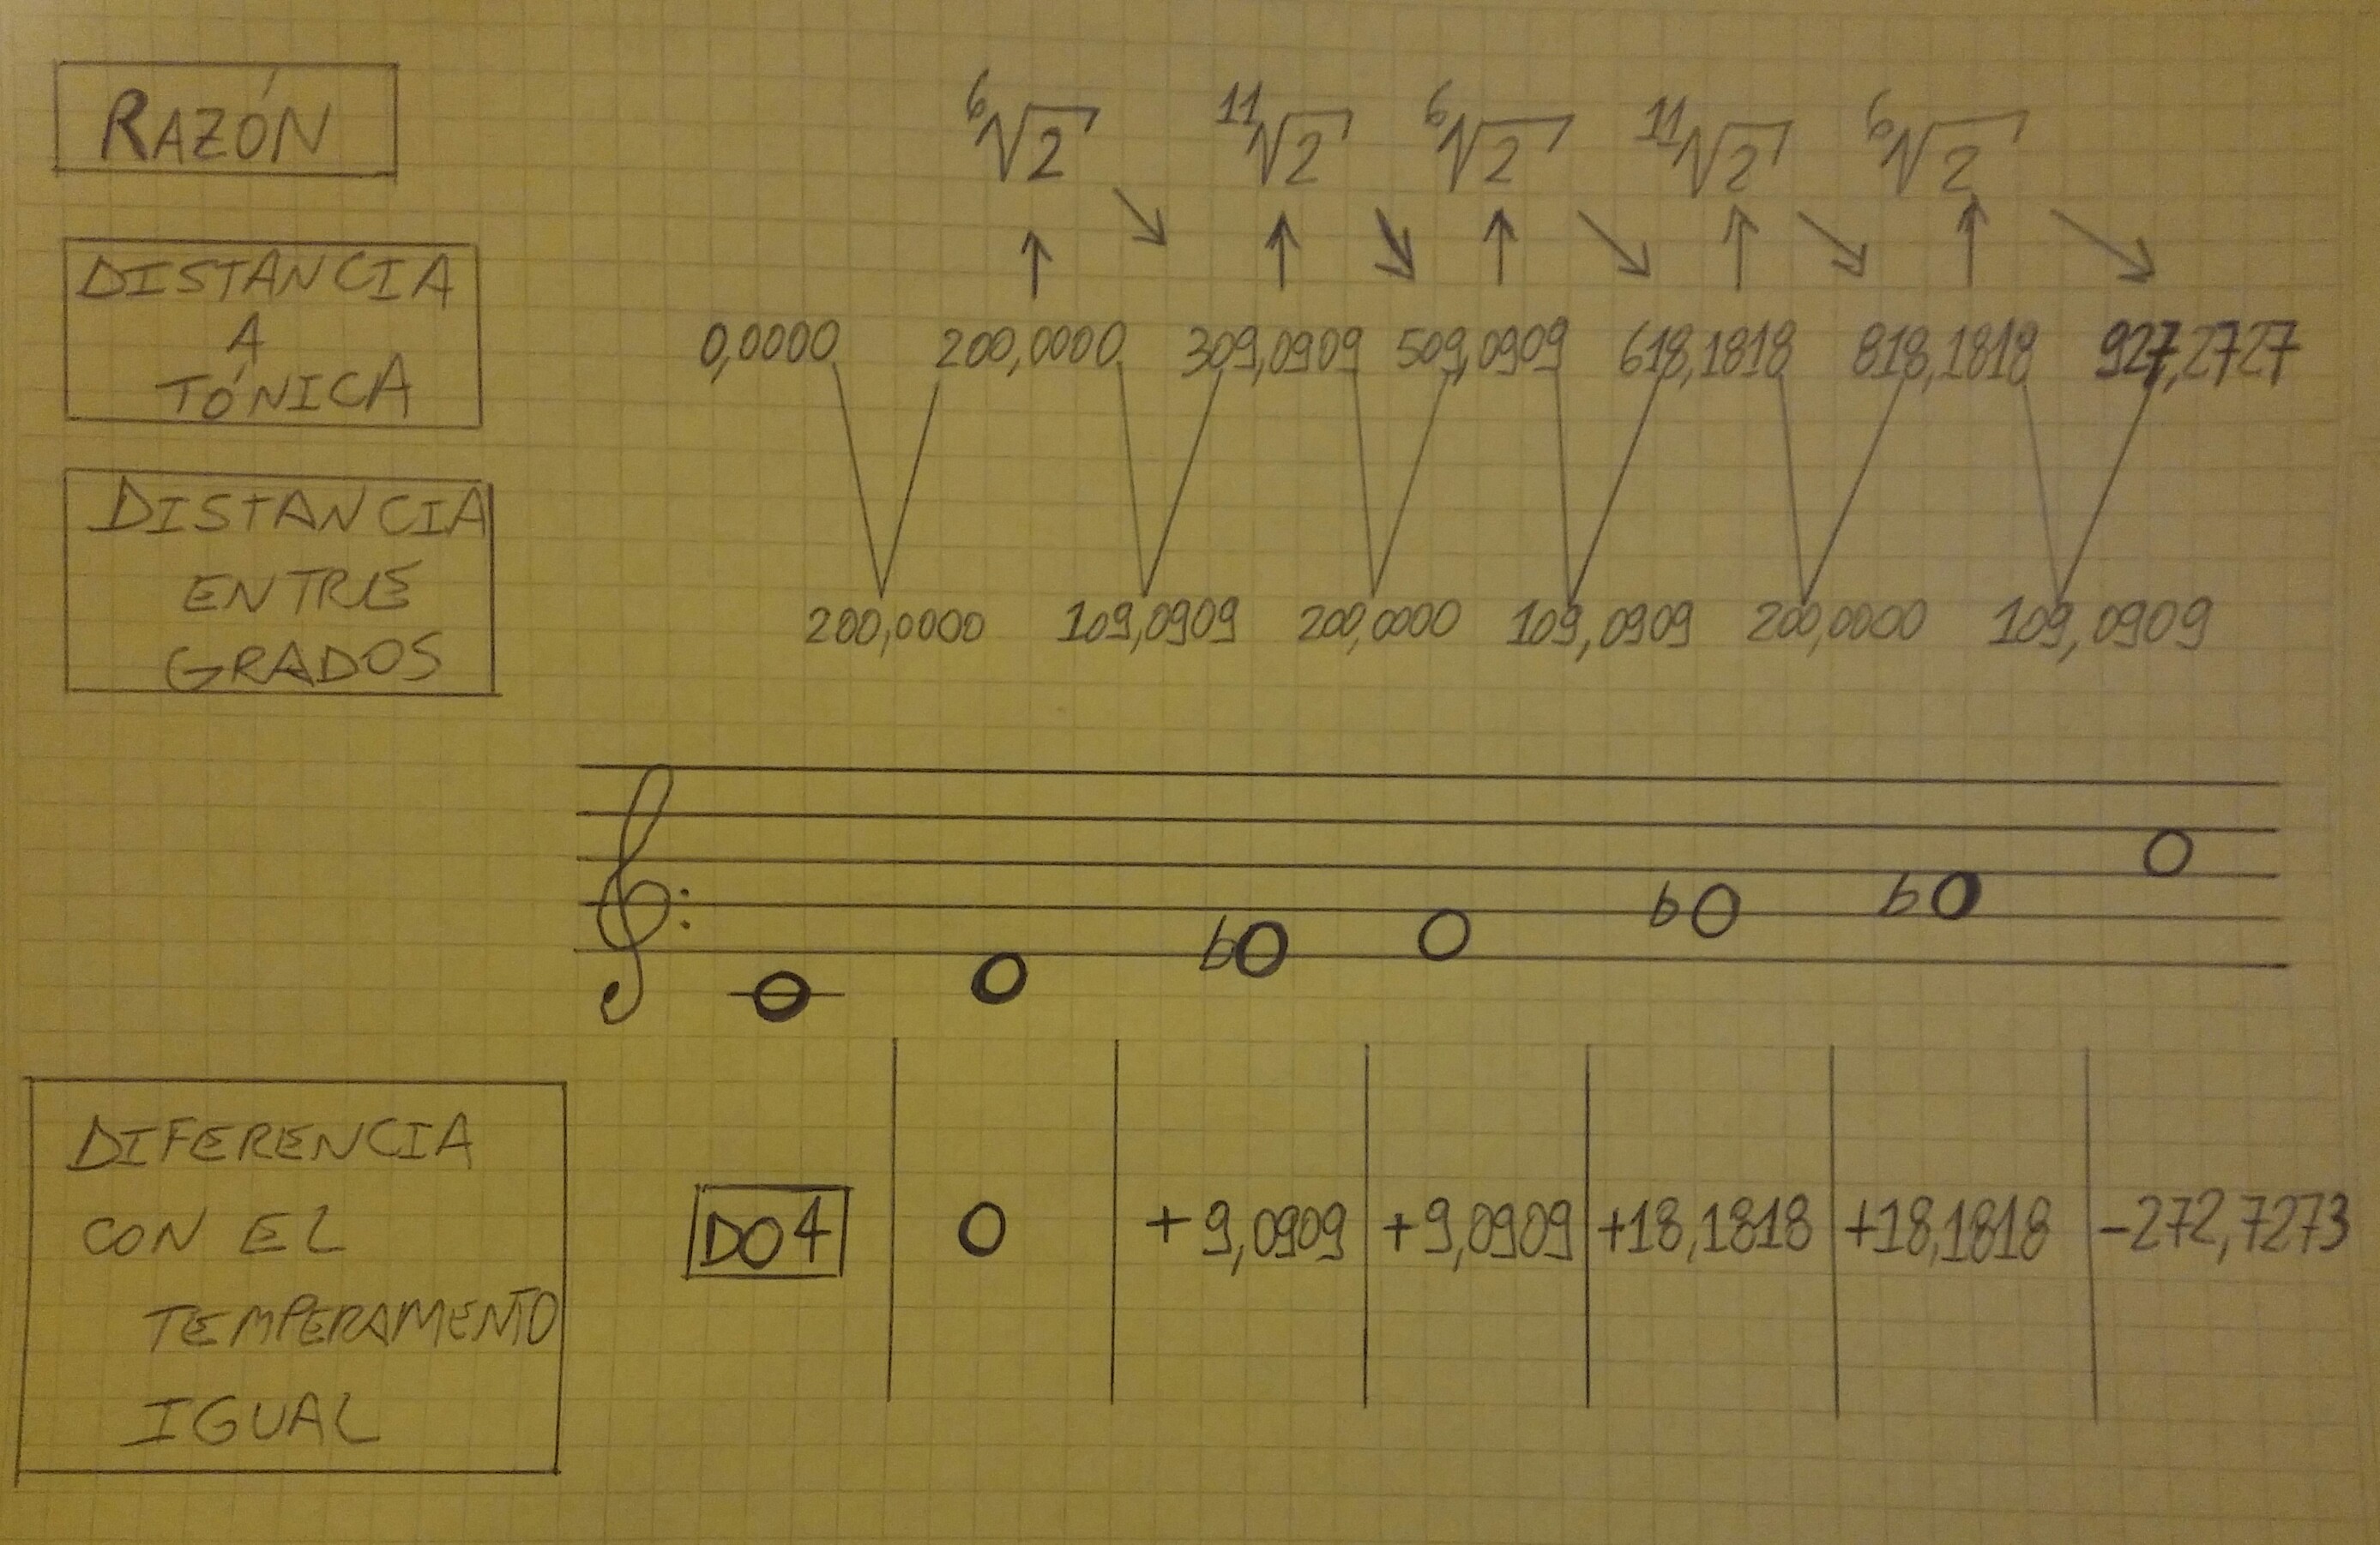 RAZÓN
⁶√2 ¹¹√2 ⁶√2 ¹¹√2 ⁶√2
DISTANCIA
A
TÓNICA
0,0000 200,0000 309,0909 509,0909 618,1818 818,1818 927,2727
DISTANCIA
ENTRE
GRADOS
200,0000 109,0909 200,0000 109,0909 200,0000 109,0909
DIFERENCIA
CON EL
TEMPERAMENTO
IGUAL
DO4 0 +9,0909 +9,0909 +18,1818 +18,1818 -272,7273